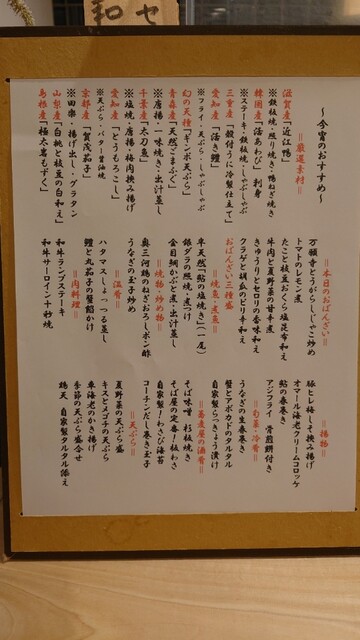 ～今宵のおすすめ～
＝厳選素材＝
滋賀産「近江鴨」
※鉄板焼・照り焼き・鴨ねぎ焼き
韓国産「活あわび」 刺身
※ステーキ・鉄板焼・しゃぶしゃぶ
三重産「殻付うに冷製仕立て」
愛知産「活き鱧」
※フライ・天ぷら・しゃぶしゃぶ
幻の天種「ギンポ天ぷら」
青森産「天然ごまふぐ」
※唐揚・一味焼き・出汁蒸し
千葉産「太刀魚」
※塩焼・唐揚・梅肉挟み揚げ
愛知産「とうもろこし」
※天ぷら・バター醤油焼
京都産「賀茂茄子」
※田楽・揚げ出し・グラタン
山梨産「白桃と枝豆の白和え」
島根産「極太岩もずく」
＝本日のおばんざい＝
万願寺とうがらしじゃこ炒め
トマトのレモン煮
たこと枝豆おくら塩昆布和え
牛肉と夏野菜の甘辛煮
きゅうりとセロリの香味和え
クラゲと胡瓜のピリ辛和え
おばんざい三種盛
＝焼魚・煮魚＝
半天然「鮎の塩焼き」（一尾）
銀ダラの照焼・煮つけ
金目鯛かぶと煮・出汁蒸し
＝焼物・炒め物＝
奥三河鶏のねぎおろしポン酢
うなぎの玉子炒め
＝温肴＝
ハタマスしょっつる蒸し
鱧と丸茄子の蟹餡かけ
＝肉料理＝
和牛ランプステーキ
和牛サーロイン十秒焼
＝揚物＝
豚ヒレ梅しそ挟み揚げ
オマール海老クリームコロッケ
鮎の春巻き
アジフライ 骨煎餅付き
＝旬菜・冷肴＝
うなぎの生春巻き
蟹とアボカドのタルタル
自家製らっきょう漬け
＝蕎麦屋の酒肴＝
そば味噌 杉板焼き
そば屋の定番！板わさ
自家製！わさび海苔
コーチンだし巻き玉子
＝天ぷら＝
夏野菜の天ぷら盛
キスとメゴチの天ぷら
車海老のかき揚げ
季節の天ぷら盛合せ
鶏天 自家製タルタル添え